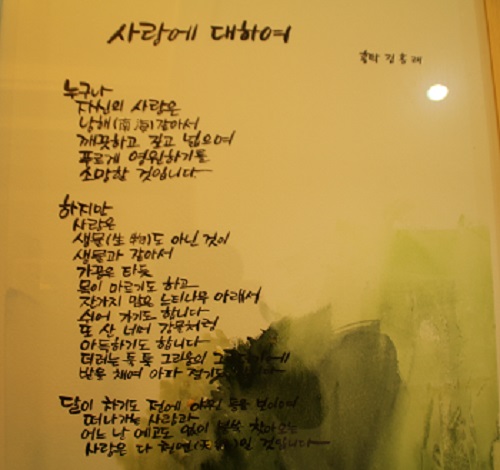 사랑에 대하여
김흥래
누구나
자신의 사랑은
남해(南海)같아서
깨끗하고 깊고 넓으며
푸르게 영원하기를
소망할 것입니다
하지만
사랑은
생물(生物)도 아닌 것이
생물과 같아서
가끔은 타듯
목이 마르기도 하고
잔가지 많은 느티나무 아래서
쉬어 가기도 합니다
또 산 너머 강물처럼
아득하기도 합니다
더러는 툭툭 그리움의
발을 채여 아파
달이 차기도 전에 야윈 등을 보이며
떠나가는 사랑과
어느 날 예고도 없이 불쑥 찾아오는
사랑은 다 천연(天緣)인 것입니다